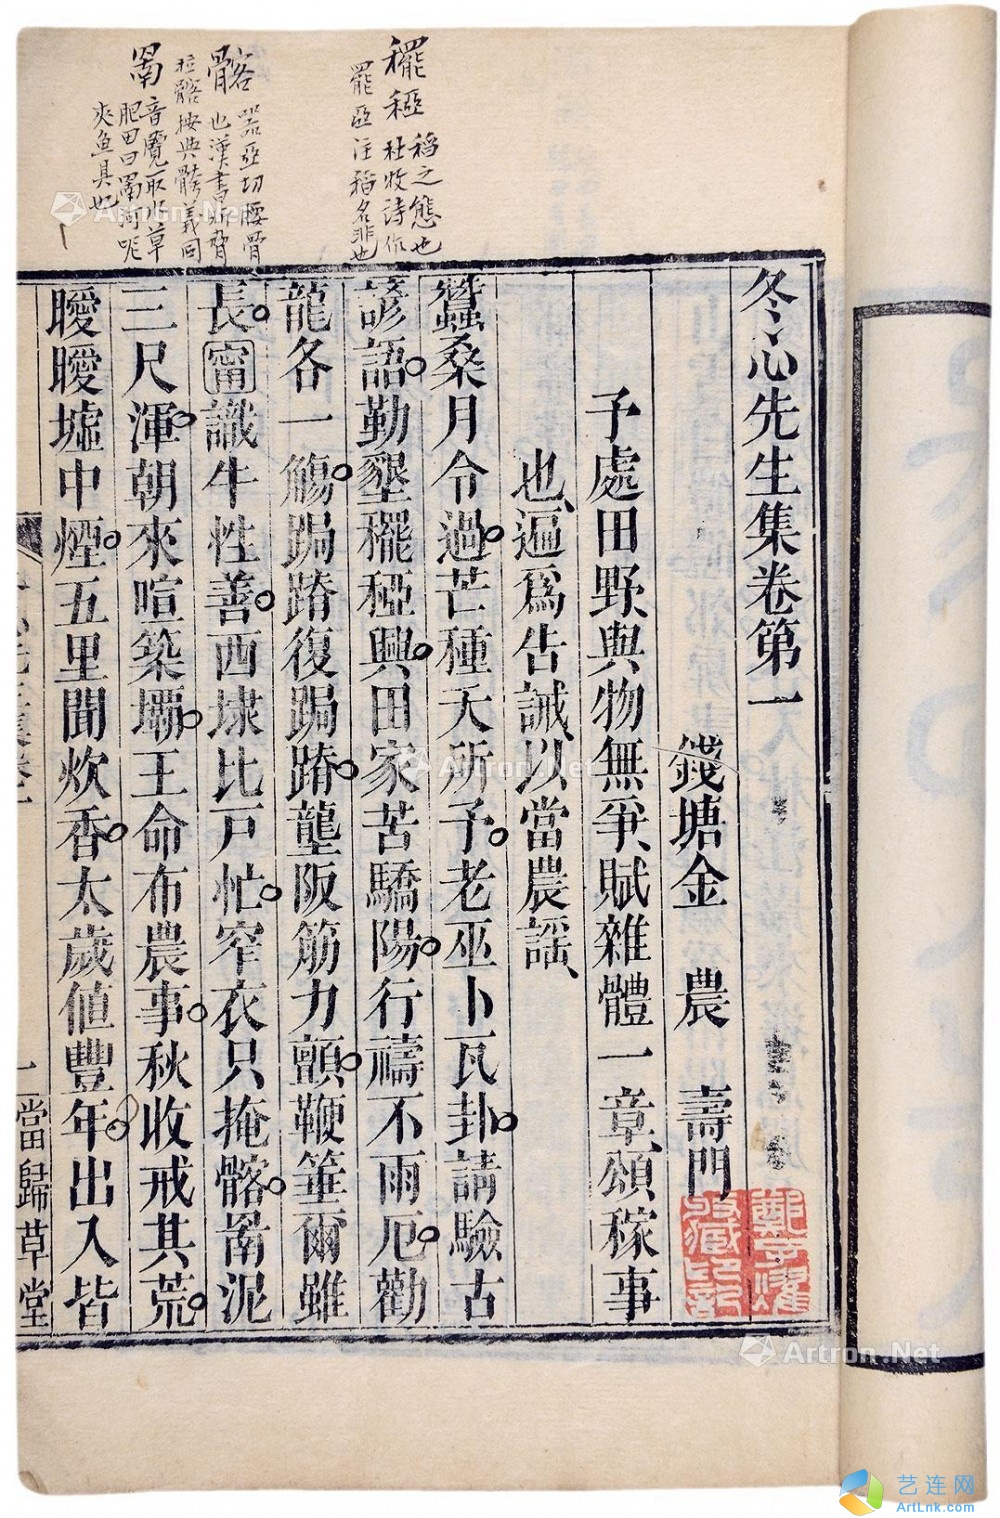 冬心先生集卷第一
錢塘金 農 壽門
予處田野與物無爭賦雜體一章頌稼事
也遍爲告誡以當農謡
蠶桑月令過芒種天所予老巫卜瓦卦請驗古
諺語勤墾䆉稏興田家苦驕陽行禱不雨厄勸
龍各一觴跼蹐復跼蹐壟阪筋力顫鞭箠爾雖
長甯識牛性善西埭比戸忙窄衣只掩髂罱泥
三尺渾朝來喧築壩王命布農事秋收戒其荒
曖曖墟中煙五里聞炊香太歲値豐年出入皆
一
當歸草堂
䆉稏
稻之態也
杜牧詩作
罷亞注稻名非也
髂
器亞切腰骨
也漢書
髂按與骻義同
罱
音覽取水草
肥田曰罱
夾魚具也
Artron.Net
Artron.Net
Artron.Net
艺连网
ArtLnk.com